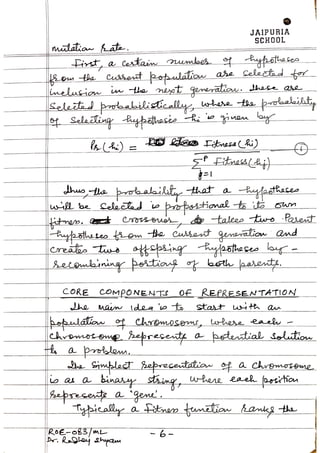 JAIPURIA
SCHOOL
mutation rate.
First, a certain number of hypotheses
from the current population are selected for
inclusion in the next generation. These are
selected probabilistically, where the probability
of selecting hypothesis hi is given by
Pr(hi) = Fitness(hi)
Σ^P Fitness(hj)
j=1
①
Thus, the probability that a hypotheses
will be selected is proportional to its own
fitness. Crossover, takes two Parent
hypotheses from the current generation and
creates two offspring hypotheses by -
recombining portions of both parents.
CORE COMPONENTS OF REPRESENTATION
The main idea is to start with an
population of Chromosome, where each -
chromosome represents a potential solution
to a problem.
The simplest representation of a chromosome
is as a binary string, where each position
represents a 'gene'.
Typically a fitness function ranks the
ROE-083/ML
-6-
Dr. Radhey Shyam